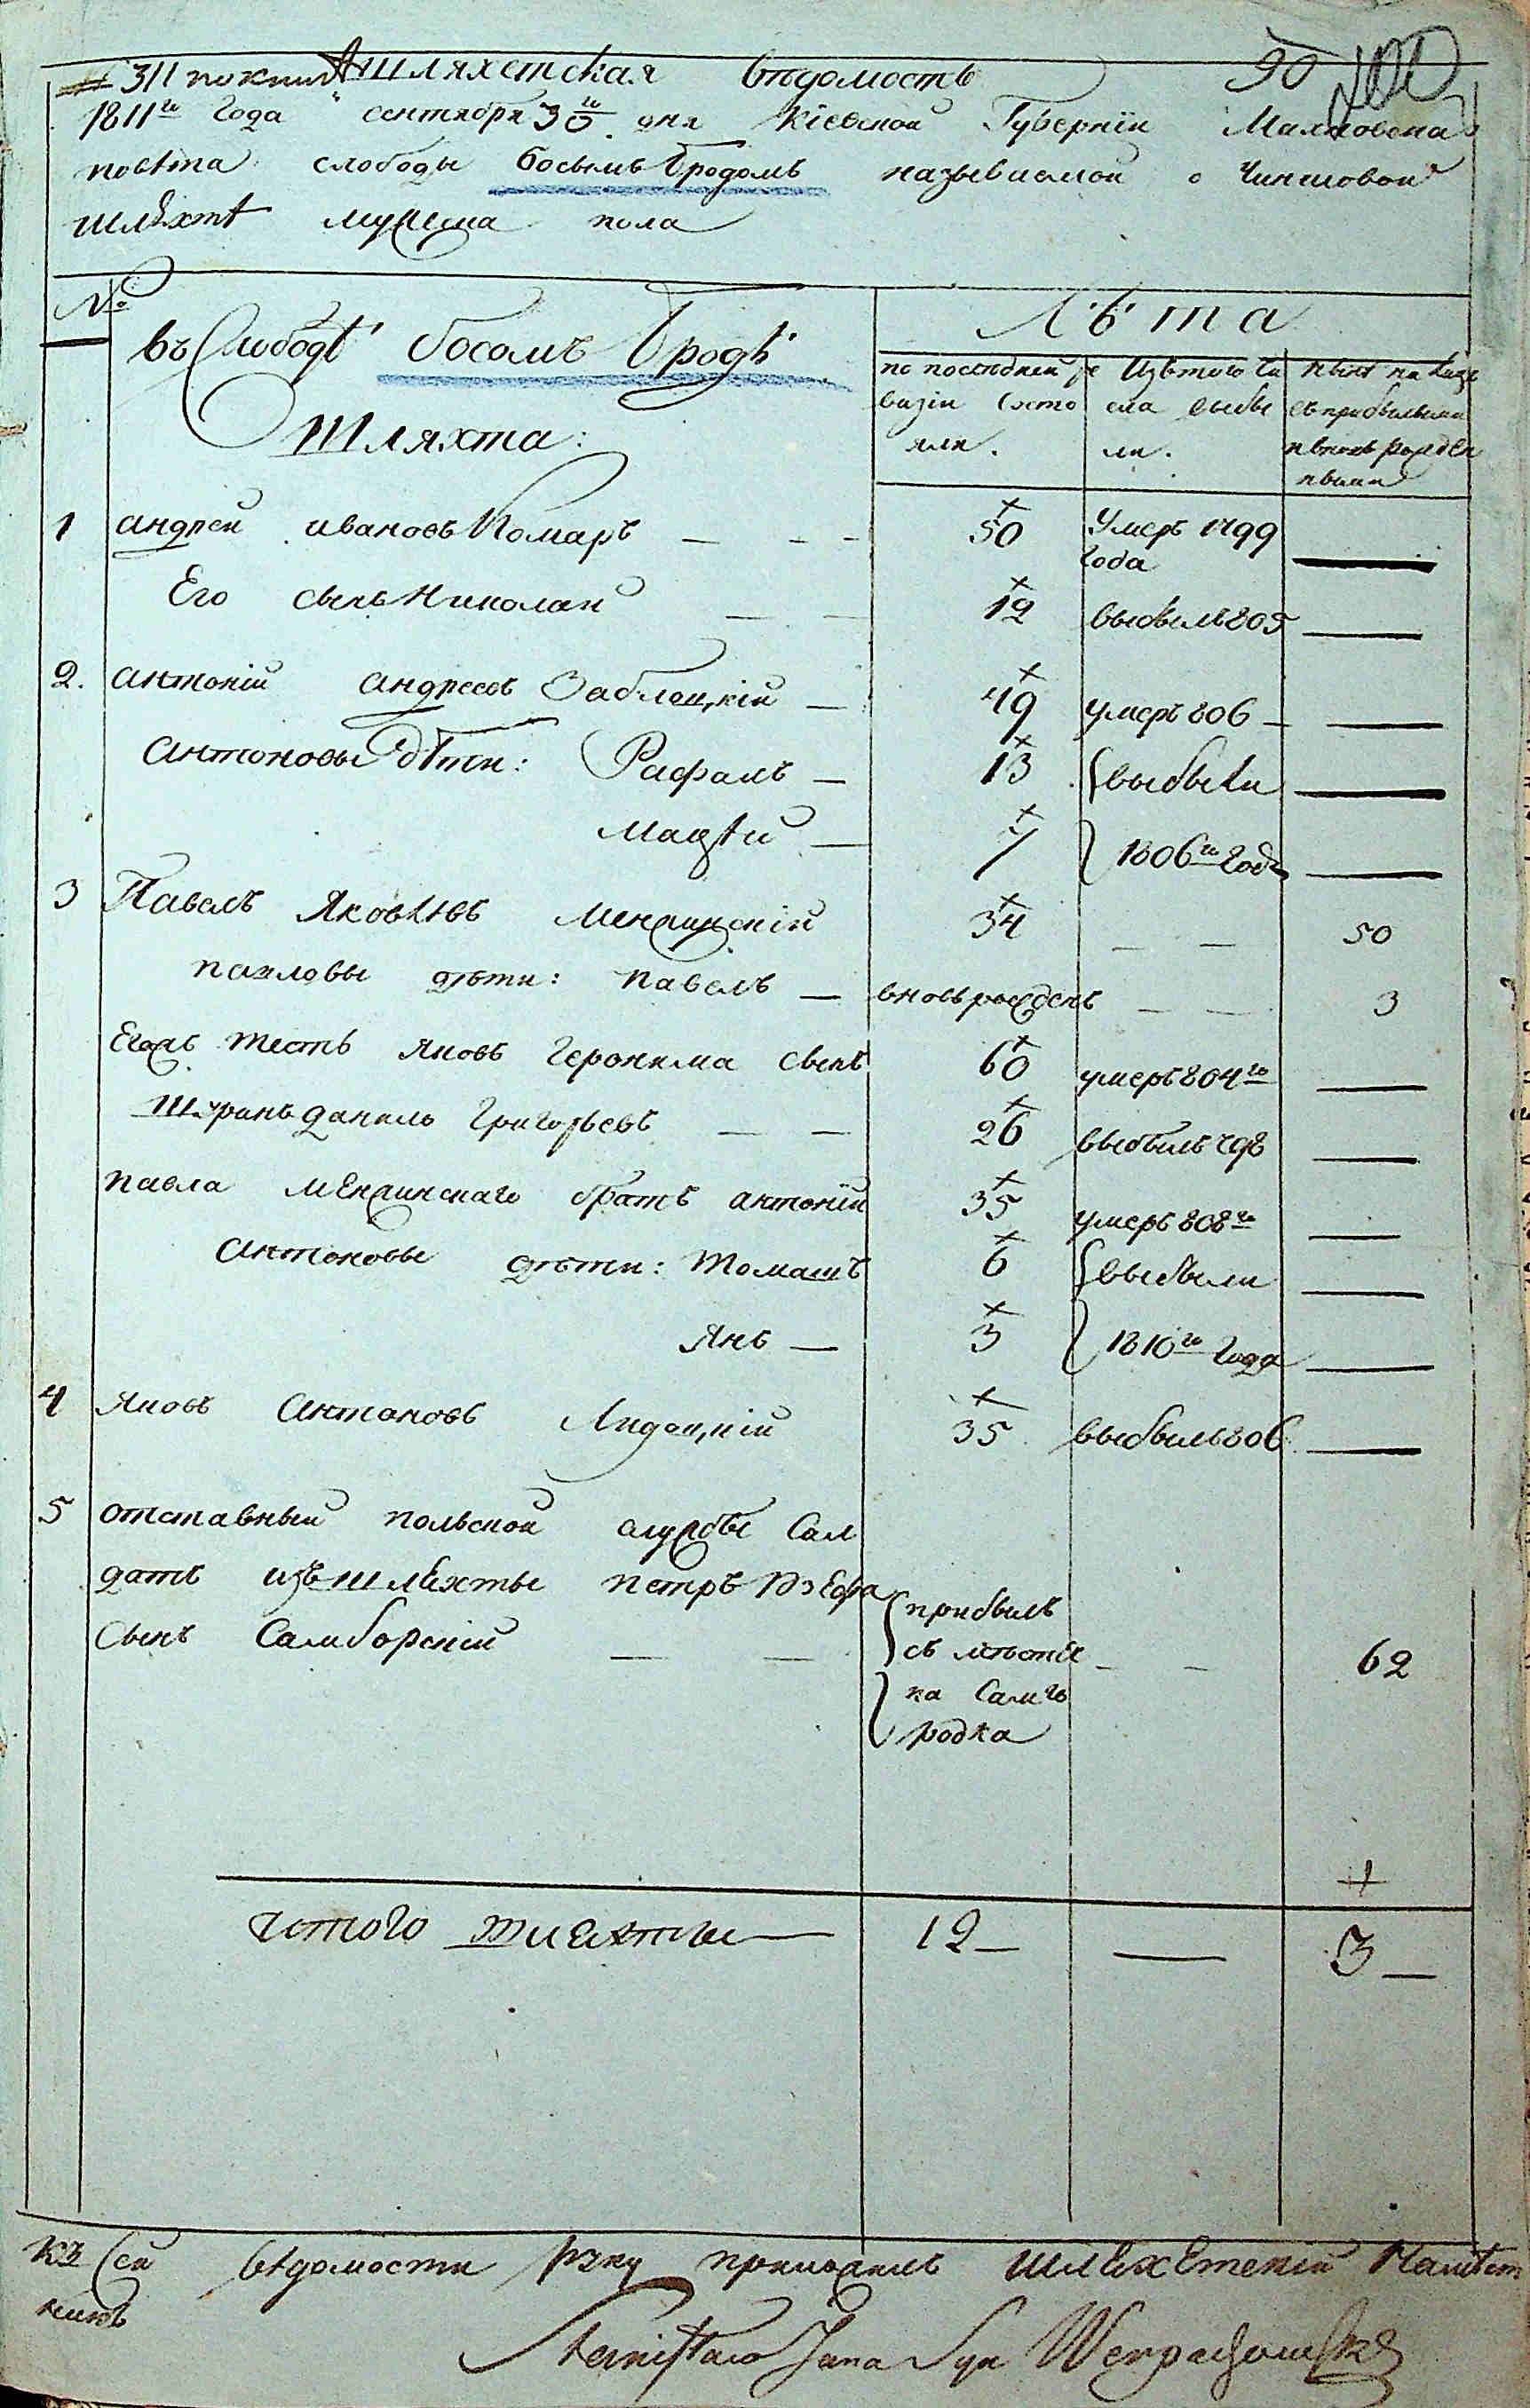 311 по книгѣ Шляхетская вѣдомость 90
1811го Года сентября 30го дня Кіевской Губерніи Махновска
повѣта слободы Босымъ Бродомъ называемой о Чиншовой
шляхтѣ мужеска пола
№
въ Слободѣ босомъ Бродѣ
Шляхта:
Лѣта
по последней ре
визіи состо
яли.
Изъ того чи
сла выбы
ли.
нынѣ на лицо
съ прибылыми
и вновь рожден
ными
1 андрей ивановъ Комаръ — — — 50 Умеръ 1799 года —
Его сынъ Николай — — 19 выбылъ 805 —
2. антоній андреевъ Заблоцкій — 49 умеръ 806 — —
антоновы дѣти: Рафалъ — 13 выбыли —
Мацѣй — 7 1806го Года —
3 Павелъ Яковлевъ Менжинскій 34 — — 50
павловы дѣти: павелъ — вновь рожденъ — — 3
Егожъ тесть яковъ Геронима сынъ 60 умеръ 804го —
Шуринъ данило Григорьевъ — — 26 выбылъ 798 —
павла менжинскаго братъ антоній 35 умеръ 808го —
антоновы дѣти: томашъ 6 выбыли —
Янъ — 3 1810го года —
4 яковъ антоновъ Лидоцкій 35 выбылъ 806 —
5 отставный польской службы Сал
датъ изъ шляхты петръ Юзефа
сынъ Самборскій — — — — 62
прибылъ
съ мѣстеч
ка Самго
родка
итого шляхты — 12 — — 3 —
Къ сей вѣдомости руку приложилъ шляхетскій Намѣст
никъ
Stanisław Jana Syn